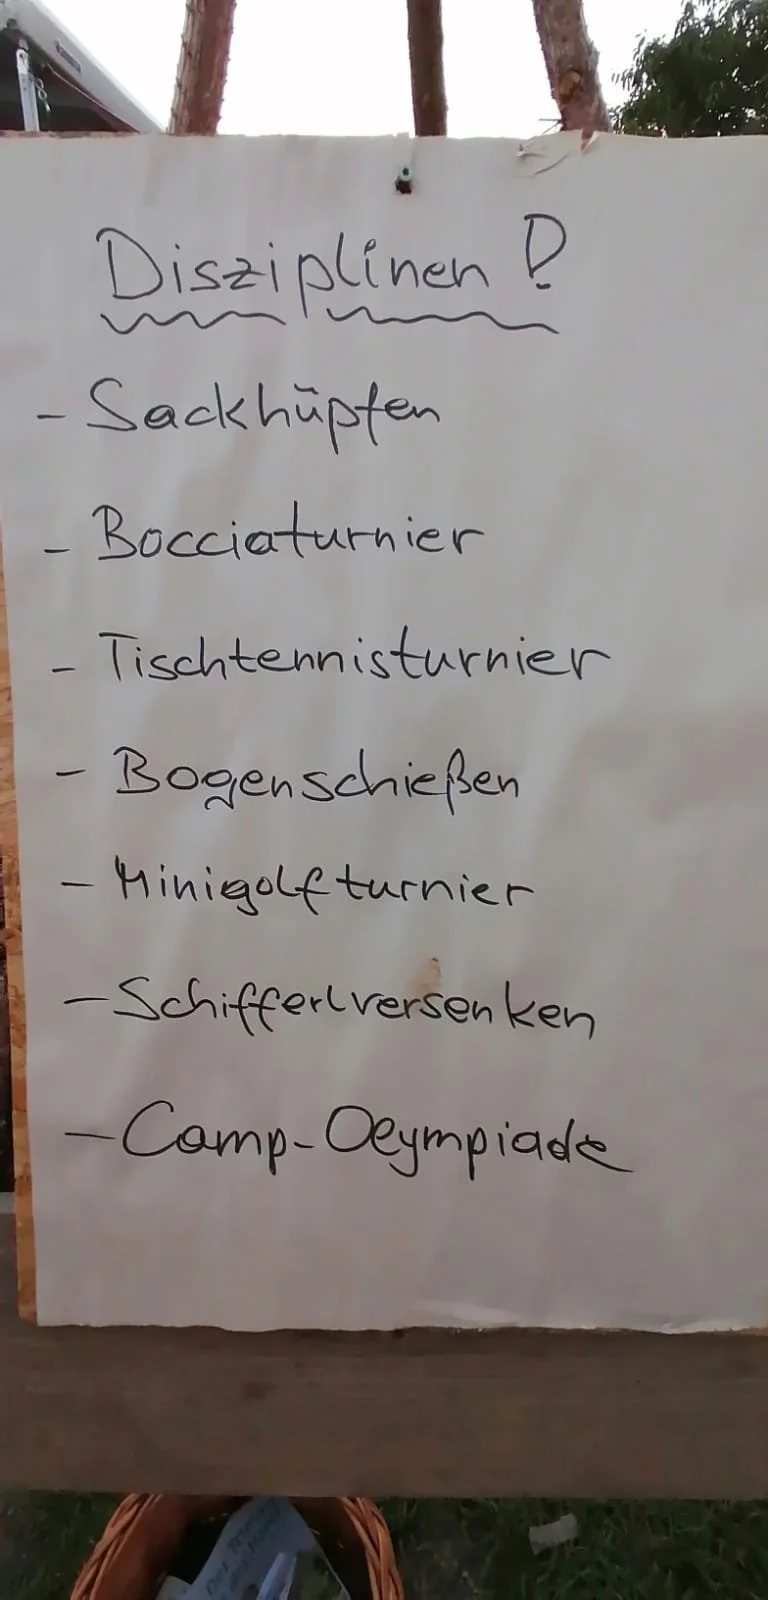 Disziplinen !
- Sackhüpfen
- Bocciaturnier
- Tischtennisturnier
- Bogenschießen
- Minigolfturnier
- Schifferlversenken
- Camp-Olympiade